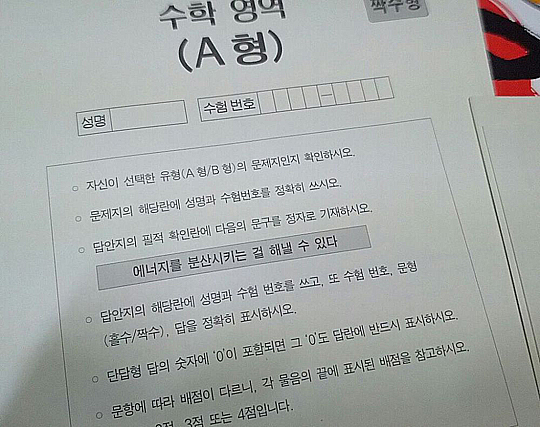 수학 영역
짝수형
(A 형)
성명
수험 번호
–
○ 자신이 선택한 유형(A 형/B 형)의 문제지인지 확인하시오.
○ 문제지의 해당란에 성명과 수험번호를 정확히 쓰시오.
○ 답안지의 필적 확인란에 다음의 문구를 정자로 기재하시오.
에너지를 분산시키는 걸 해낼 수 있다
○ 답안지의 해당란에 성명과 수험 번호를 쓰고, 또 수험 번호, 문형
(홀수/짝수), 답을 정확히 표시하시오.
○ 단답형 답의 숫자에 '0'이 포함되면 그 '0'도 답란에 반드시 표시하시오.
○ 문항에 따라 배점이 다르니, 각 물음의 끝에 표시된 배점을 참고하시오.
2점, 3점 또는 4점입니다.